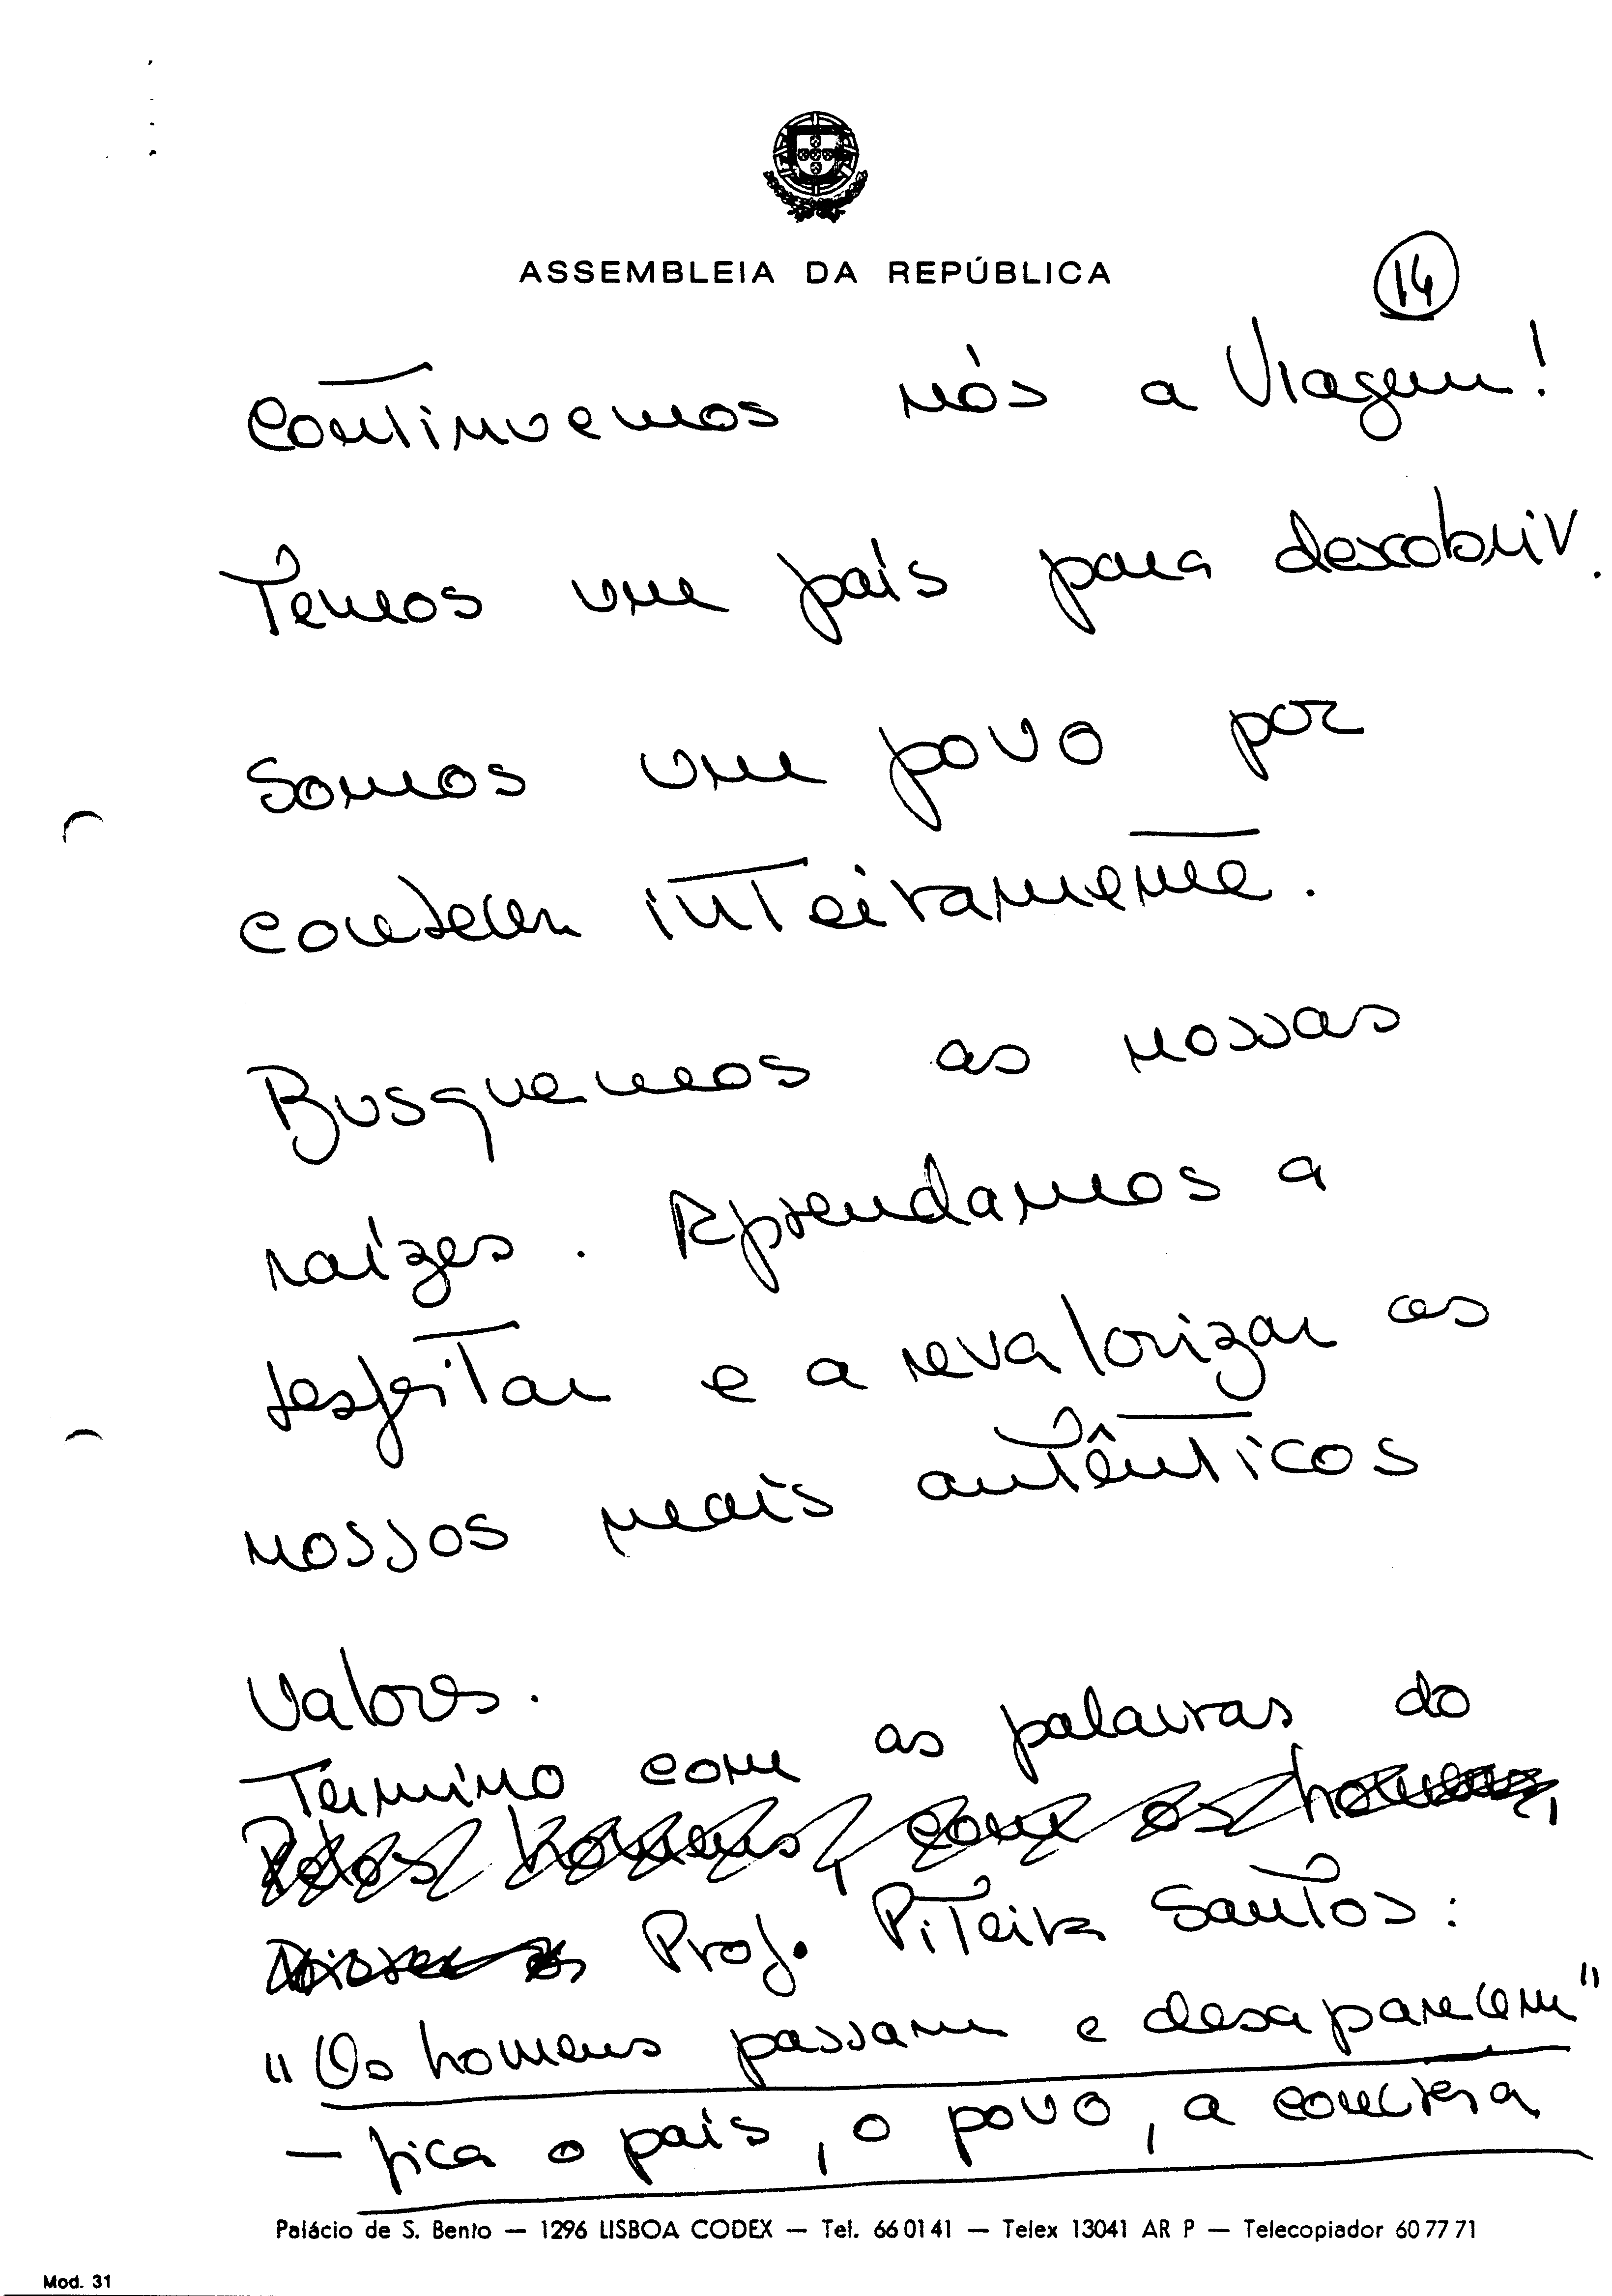 ASSEMBLEIA DA REPÚBLICA
14
Continuemos nós a Viagem!
Temos um país para descobrir.
Somos um povo por
conhecer inteiramente.
Busquemos as nossas
raízes. Aprendamos a
respeitar e a revalorizar os
nossos mais autênticos
valores.
Termino com as palavras do
Pelos homens, com os homens,
Prof. Piteira Santos:
"Os homens passam e desaparecem"
— fica o país, o povo, a
Palácio de S. Bento — 1296 LISBOA CODEX — Tel. 66 01 41 — Telex 13041 AR P — Telecopiador 60 77 71
Mod. 31